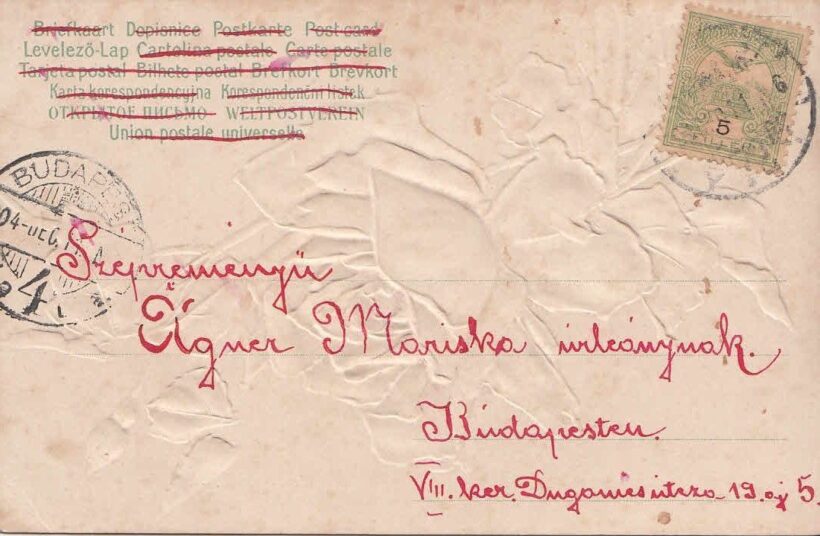 Briefkaart Dopisnice Postkarte Post card
Levelező-Lap Cartolina postale Carte postale
Tarjeta postal Bilhete postal Brefkort Brevkort
Karta korespondencyjna Korespondenční lístek
ОТКРЫТОЕ ПИСЬМО WELTPOSTVEREIN
Union postale universelle
5
BUDAPEST
04 DEC
4
Szépreményü
Ágner Mariska úrleánynak.
Budapesten.
VIII. ker. Dugonics utcza 19. aj 5.